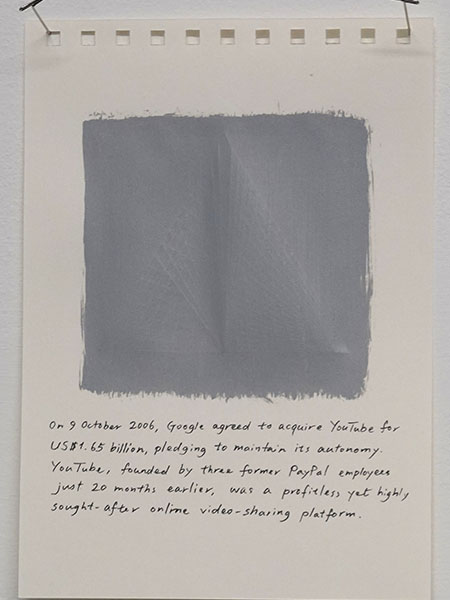 On 9 October 2006, Google agreed to acquire YouTube for
US$1.65 billion, pledging to maintain its autonomy.
YouTube, founded by three former PayPal employees
just 20 months earlier, was a profitless yet highly
sought-after online video-sharing platform.